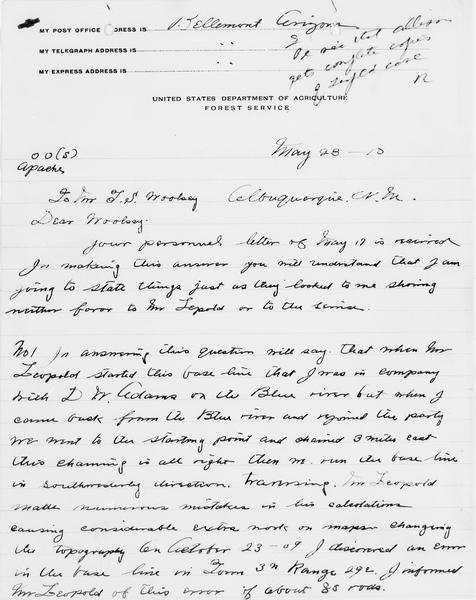 MY POST OFFICE ADDRESS IS Bellemont Arizona
MY TELEGRAPH ADDRESS IS " "
MY EXPRESS ADDRESS IS " "
gets complete copies
of Leopold case
R
UNITED STATES DEPARTMENT OF AGRICULTURE
FOREST SERVICE
May 28 - 10
O O (S)
Apache
To Mr T. S. Woolsey Albuquerque, N. M.
Dear Woolsey.
Your personnel letter of May 17 is received
In making this answer you will understand that I am
going to state things just as they looked to me showing
neither favor to Mr Leopold or to the service.
No 1 In answering this question will say that when Mr
Leopold started this base line that I was in company
with D W. Adams on the Blue river but when I
came back from the Blue river and rejoined the party
we went to the starting point and chained 3 miles east
this chaining is all right then we run the base line
in southwesterly direction. Traversing. Mr Leopold
made numerous mistakes in his calculations
causing considerable extra work on maps changing
the topography On October 23 - 09 I discovered an error
in the base line in Town 3 N Range 29 E. I informed
Mr Leopold of this error of about 85 rods.